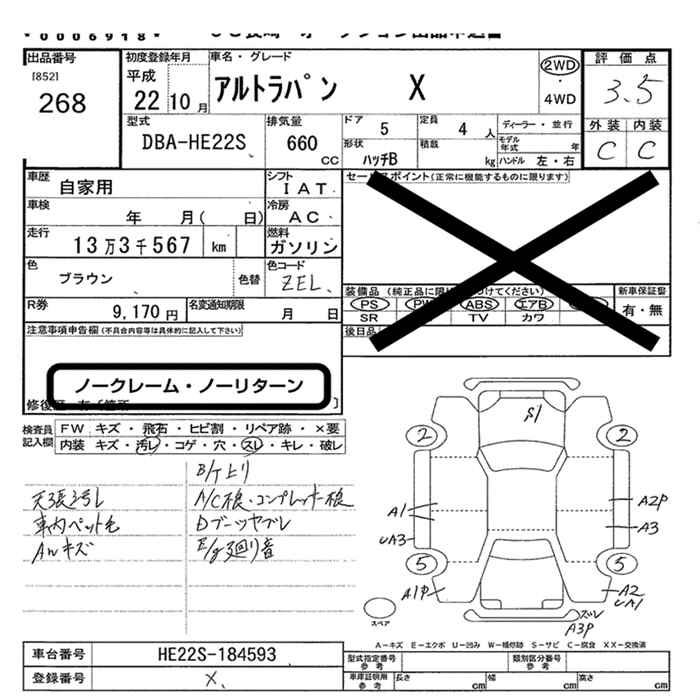 出品番号
[852]
268
初度登録年月
平成
22 10 月
車名・グレード
アルトラパン X
2WD
・
4WD
評価点
3.5
外装 内装
C C
型式
DBA-HE22S
排気量
660
CC
ドア 5
定員 4 人
ディーラー・並行
モデル年式 年
形状
ハッチB
積載 kg
ハンドル 左・右
車歴
自家用
シフト
I A T
車検
年 月( 日)
冷房
A C
走行
13万3千567 km
燃料
ガソリン
色
ブラウン
色替
色コード
ZEL
R券
9,170 円
名変通知期限
月 日
セールスポイント(正常に機能するものに限ります)
新車保証書
有・無
PS ABS エアB
SR TV カワ
注意事項申告欄(不具合内容等は具体的に記入して下さい)
ノークレーム・ノーリターン
検査員
記入欄
FW キズ・飛石・ヒビ割・リペア跡・×要
内装 キズ・汚レ・コゲ・穴・スレ・キレ・破レ
天張ヨゴレ
車内ペット毛
AWキズ
B/T上り
A/C根・コンプレッサー根
Dブーツヤブレ
E/g廻り音
S1
2 2
A1
UA3
A2P
A3
5 5
A1P
A2
UA1
ズレ
A3P
スペア
A-キズ E-エクボ U-凹み W-補修跡 S-サビ C-腐食 XX-交換済
車台番号
HE22S-184593
登録番号
X
型式指定番号
参考
類別区分番号
参考
車庫証明用
参考
長さ cm
幅 cm
高さ cm